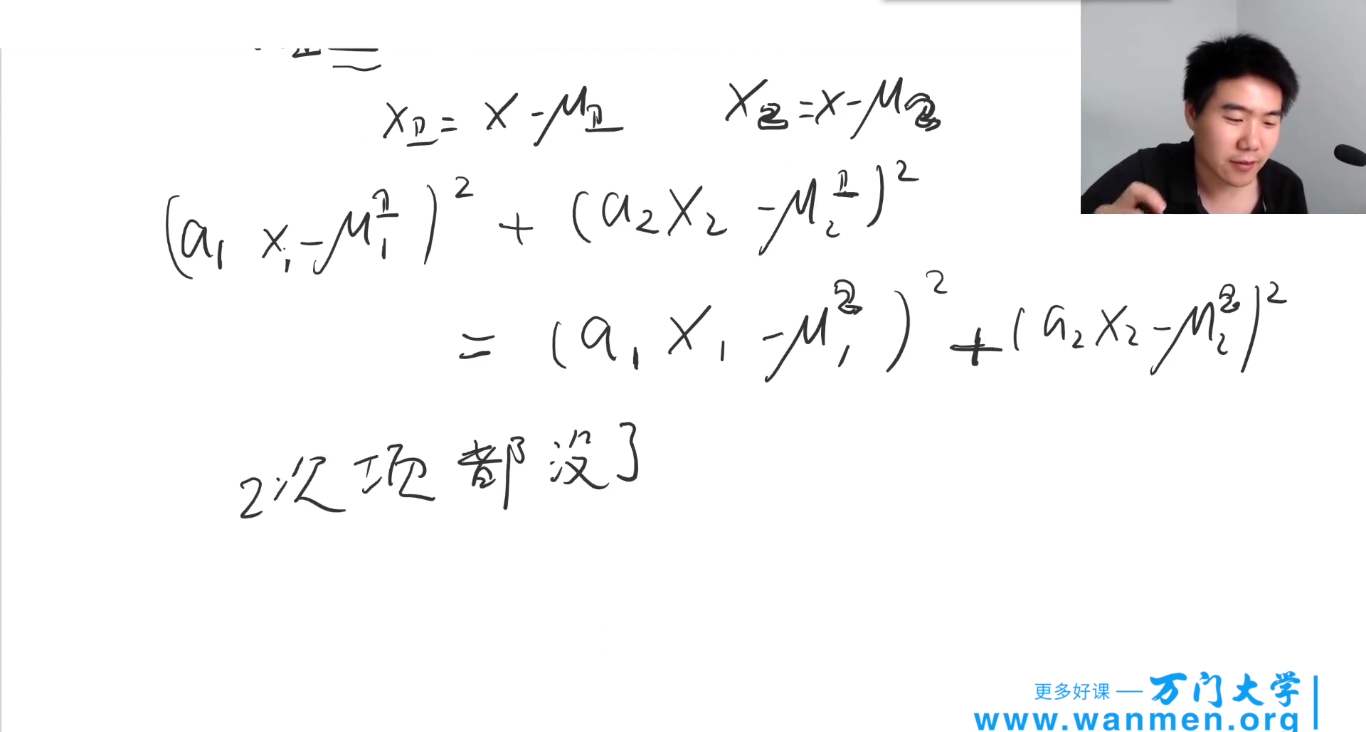 x₁ = x - μ₁ x₂ = x - μ₂
(a₁ x₁ - μ₁¹)² + (a₂ x₂ - μ₂¹)²
= (a₁ x₁ - μ₁²)² + (a₂ x₂ - μ₂²)²
2次项都没了
更多好课 — 万门大学
www.wanmen.org